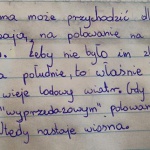 ma może przychodzić dl
ają, na polowanie na
żeby nie było im z
a południe, to właśnie
wieje lodowy wiatr. Gdy
"wyprzedażowym" polowan
tedy nastaje wiosna.